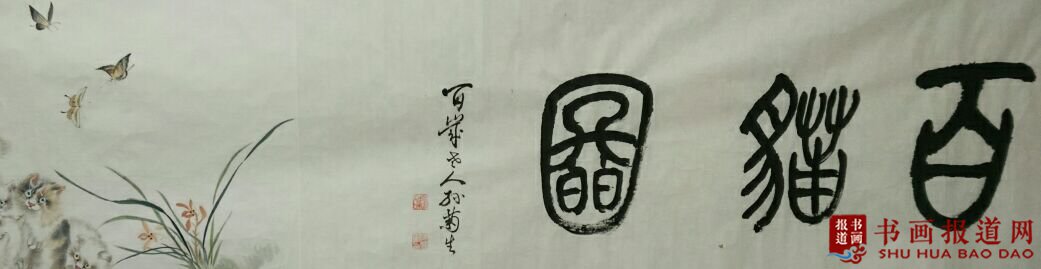 百貓圖
百歲老人孙菊生
书画
报道
书画报道网
SHU HUA BAO DAO